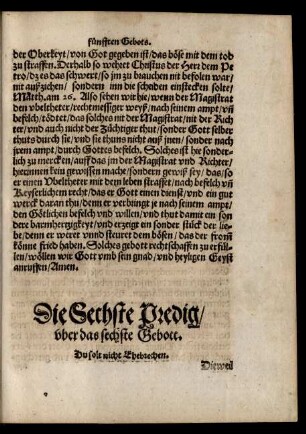 fünfften Gebots.
der Oberkeyt/von Got gegeben ist/das böse mit dem tod
zu straffen. Derhalb so wehret Christus der Herr dem Pe
tro/dz es das schwert/so jm zu brauchen nit befolen war/
nit außziehen/ sondern inn die schaiden einstecken solte/
Matth. am 26. Also sehen wir hie/wenn der Magistrat
den vbelthetter/rechtmessiger weyß/nach seinem ampt/vñ
befelch/tödtet/das solches nit der Magistrat/nit der Rich
ter/vnd auch nicht der Züchtiger thut/sonder Gott selber
thuts durch sie/vnd sie thuns nicht auß jnen/ sonder nach
jrem ampt/durch Gottes befelch. Solches ist hie sonder-
lich zu mercken/auff das jm der Magistrat vnd Richter/
hierinnen kein gewissen mache/sondern gewiß sey/das/so
er einen Vbeltheter mit dem leben straffet/nach befelch vñ
Keyserlichem recht/das er Gott einen dienst/vnd ein gut
werck daran thu/denn er verbringt je nach seinem ampt/
den Götlichen befelch vnd willen/vnd thut damit ein son
dere barmhertzigkeyt/vnd erzeigt ein sonder stück der lie-
be/denn er weret vnnd steurt dem bösen/ das der from̃
könne fried haben. Solches gebott rechtschaffen zu erfül
len/wöllen wir Gott vmb sein gnad/vnd heyligen Geyst
anruffen/Amen.
Die Sechste Predig/
vber das sechste Gebott.
Du solt nicht Ehebrechen.
Dieweil